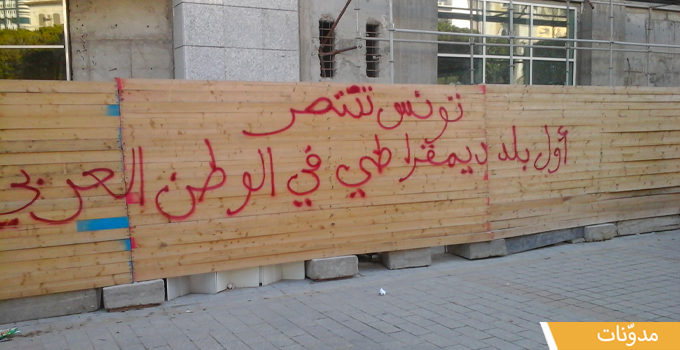 تونس تنتصر
أول بلد ديمقراطي في الوطن العربي
مدوّنات